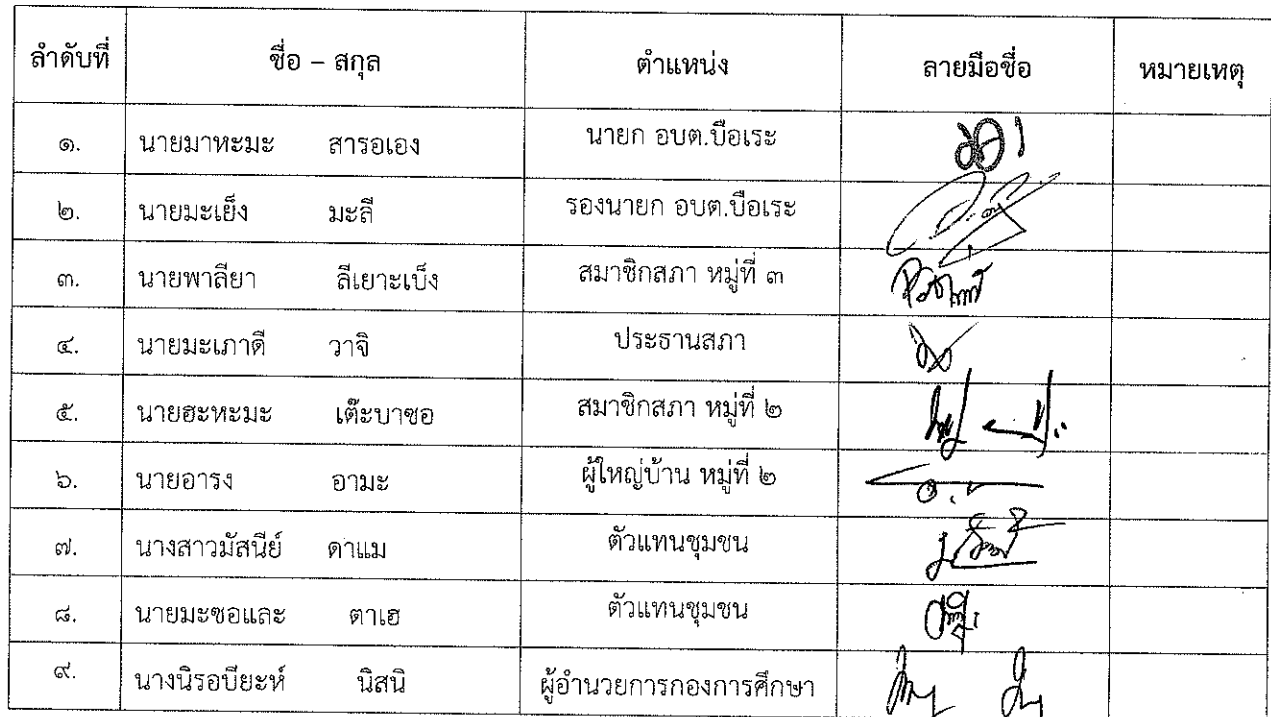 ลำดับที่ ชื่อ – สกุล ตำแหน่ง ลายมือชื่อ หมายเหตุ
๑. นายมาหะมะ สารอเอง นายก อบต.บือเระ
๒. นายมะเย็ง มะลี รองนายก อบต.บือเระ
๓. นายพาลียา ลีเยาะเบ็ง สมาชิกสภา หมู่ที่ ๓
๔. นายมะเภาดี วาจิ ประธานสภา
๕. นายฮะหะมะ เต๊ะบาซอ สมาชิกสภา หมู่ที่ ๒
๖. นายอารง อามะ ผู้ใหญ่บ้าน หมู่ที่ ๒
๗. นางสาวมัสนีย์ ดาแม ตัวแทนชุมชน
๘. นายมะซอและ ตาเฮ ตัวแทนชุมชน
๙. นางนิรอบียะห์ นิสนิ ผู้อำนวยการกองการศึกษา